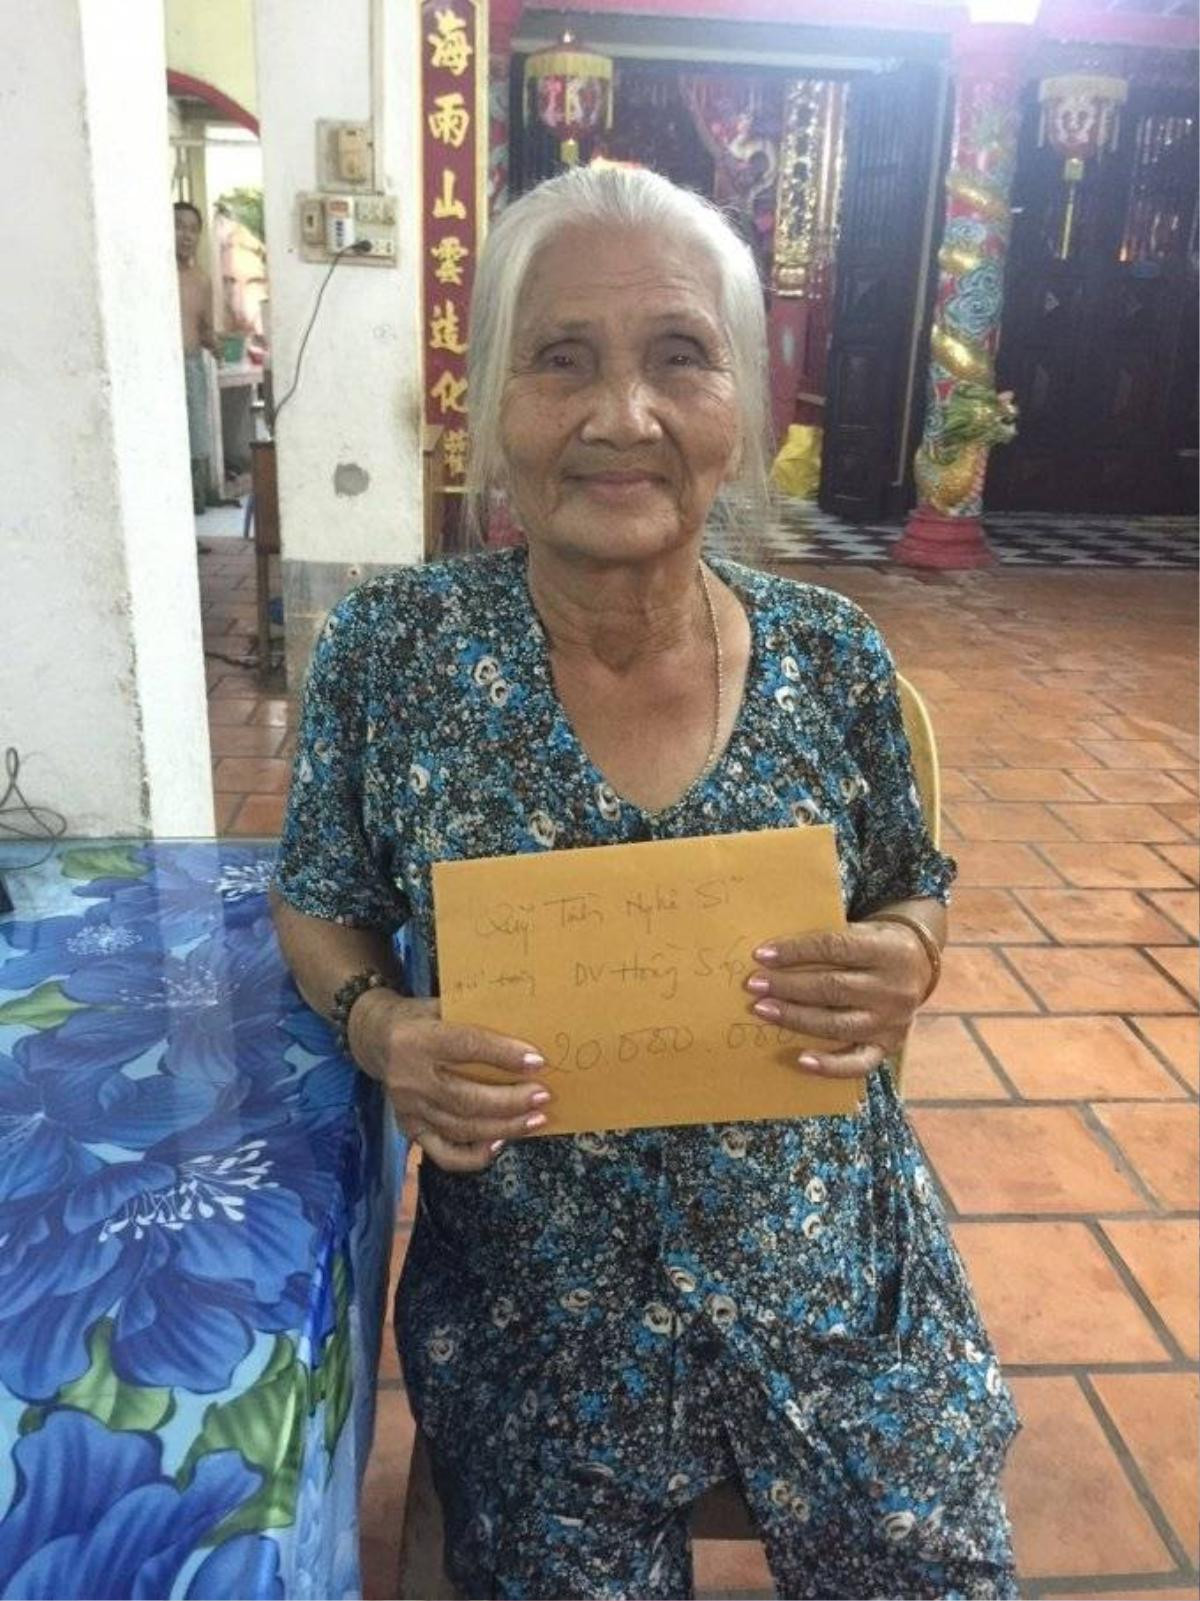 海雨山雲造化
Quỹ Tình Nghệ Sĩ
gửi tặng DV Hồng Sáp
20.000.000